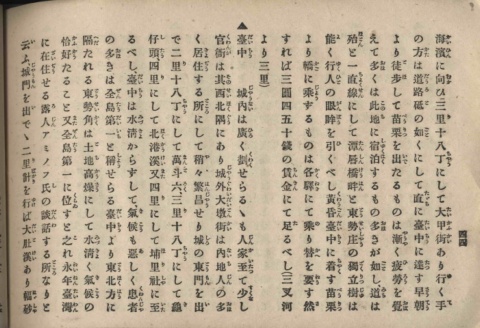 四四
海濱に向ひ三里十八丁にして大甲街あり行く手
の方は道路砥の如くにして直に臺中に達す早朝
より徒歩して苗栗を出たるものは漸く疲勞を覺
えて多くは此地に宿泊するもの多きが如し道は
殆と一直線にして潭厝橋畔と東勢庄の獨立樹は
能く行人の眼眸を引くべし黃昏臺中に着す苗栗
より轎に乘するものは各驛にて乘り替を要す然
すれば三圓四五十錢の賃金にて足るべし(三叉河
より三里)
▲臺中 城內は廣く劃せらるゝも人家至て少し
官衙は其西北隅にあり城外大墩街は內地人の多
く居住する所にして稍々繁昌せり城の東門を出
で二里十八丁にして萬斗六、三里十八丁にして龜
仔頭四里にして北港溪又四里にして埔里社に至
るべし臺中は水淸からずして氣候も惡しく患者
の多きは全島第一と稱せらる臺中より東北方に
隔たれる東勢角は土地高燥にして水淸く氣候の
恰好たること又全島第一に位すと之れ永年臺灣
に在住せる露人アミノフ氏の談話する所なりと
云ふ城門を出でゝ二里計を行ば大肚溪あり幅砂